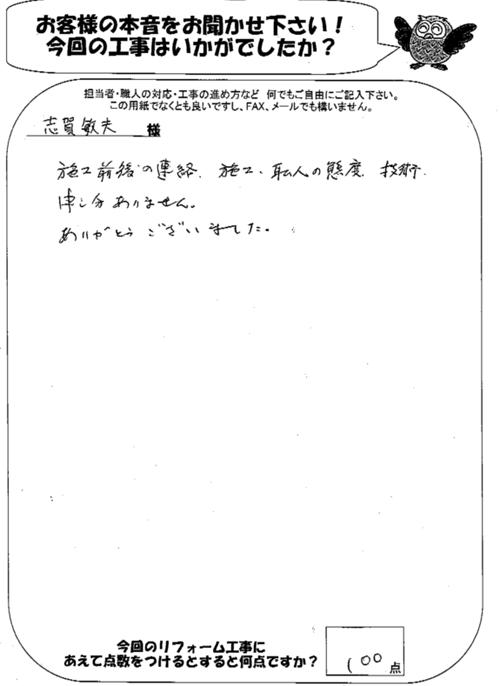 お客様の本音をお聞かせ下さい！
今回の工事はいかがでしたか？
担当者・職人の対応・工事の進め方など 何でもご自由にご記入下さい。
この用紙でなくとも良いですし、FAX、メールでも構いません。
志賀敏夫 様
施工前後の連絡、施工、職人の態度、技術、
申し分ありません。
ありがとうございました。
今回のリフォーム工事に
あえて点数をつけるとすると何点ですか？
100点